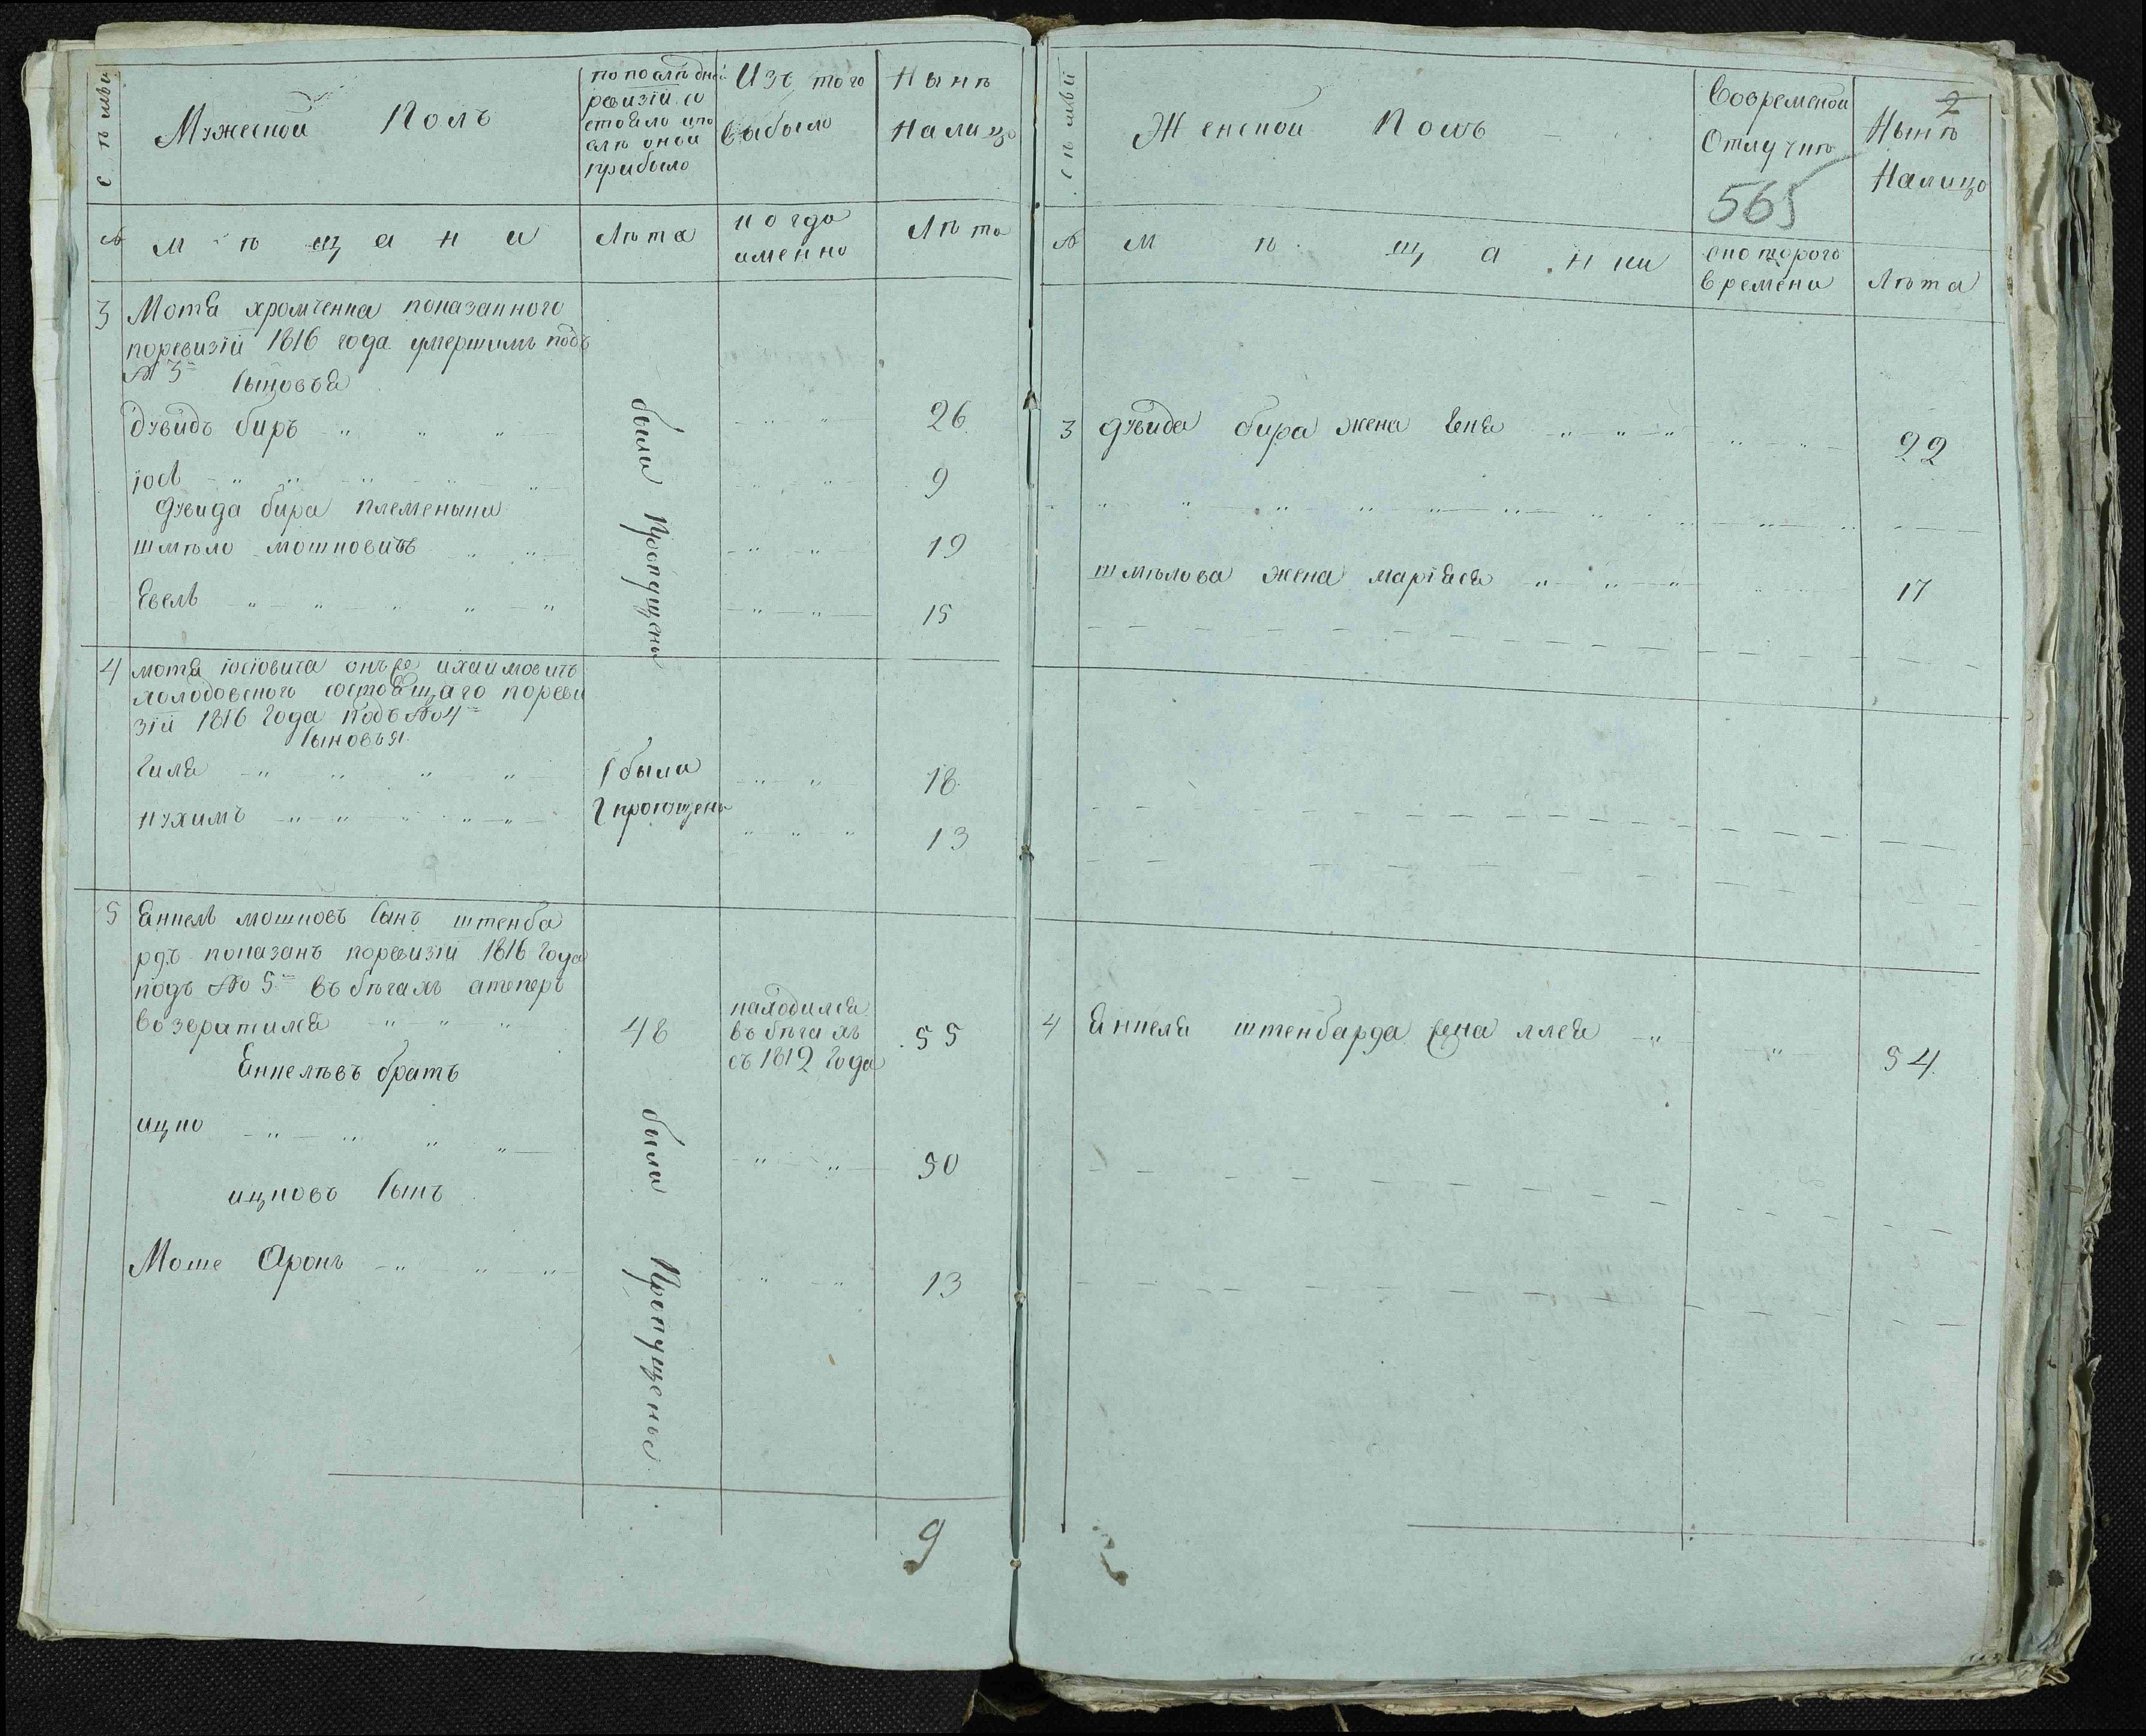 Семьи
Мужеской Полъ
попослѣдней
ревизіи со
стояло ипо
слѣ оной
прибыло
Изъ того
выбыло
Нынѣ
Налицо
№
мѣщани
Лѣта
когда
именно
Лѣта
3 Мотя хромченка показанного
поревизіи 1816 года умершимъ подъ
№ 3 = Сыновья
дувидъ биръ 26
були пропущены
іось 9
дувида бира племеныки
шмѣло мошковичъ 19
Евель 15
4 мотя іосіовича онъже ихаймовичъ
холодовского состоящаго пореви
зіи 1816 года подъ №4=
Сыновья
Гиля 1 были 18
нухимъ 2 пропущены 13
5 Янкель мошковъ Сынъ штенба
рдъ показанъ поревизіи 1816 года
подъ №5= въ бѣгахъ атеперь
возвратился 48 находился
въ бѣгахъ
съ 1812 года 55
Янкелѣвъ братъ
ицко 50
були Пропущены
ицковъ Сынъ
Моше Аронъ 13
9
Семьи
Женской Полъ
Вовременой
Отлучкѣ
565
2
Нынѣ
Налицо
№
мѣщанки
скоторого
времени
Лѣта
3 дувида бира жена Геня 22
шмѣлова жена маріяся 17
4 Янкеля штенбарда жена ллея 54